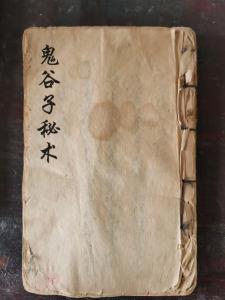 鬼谷子秘术